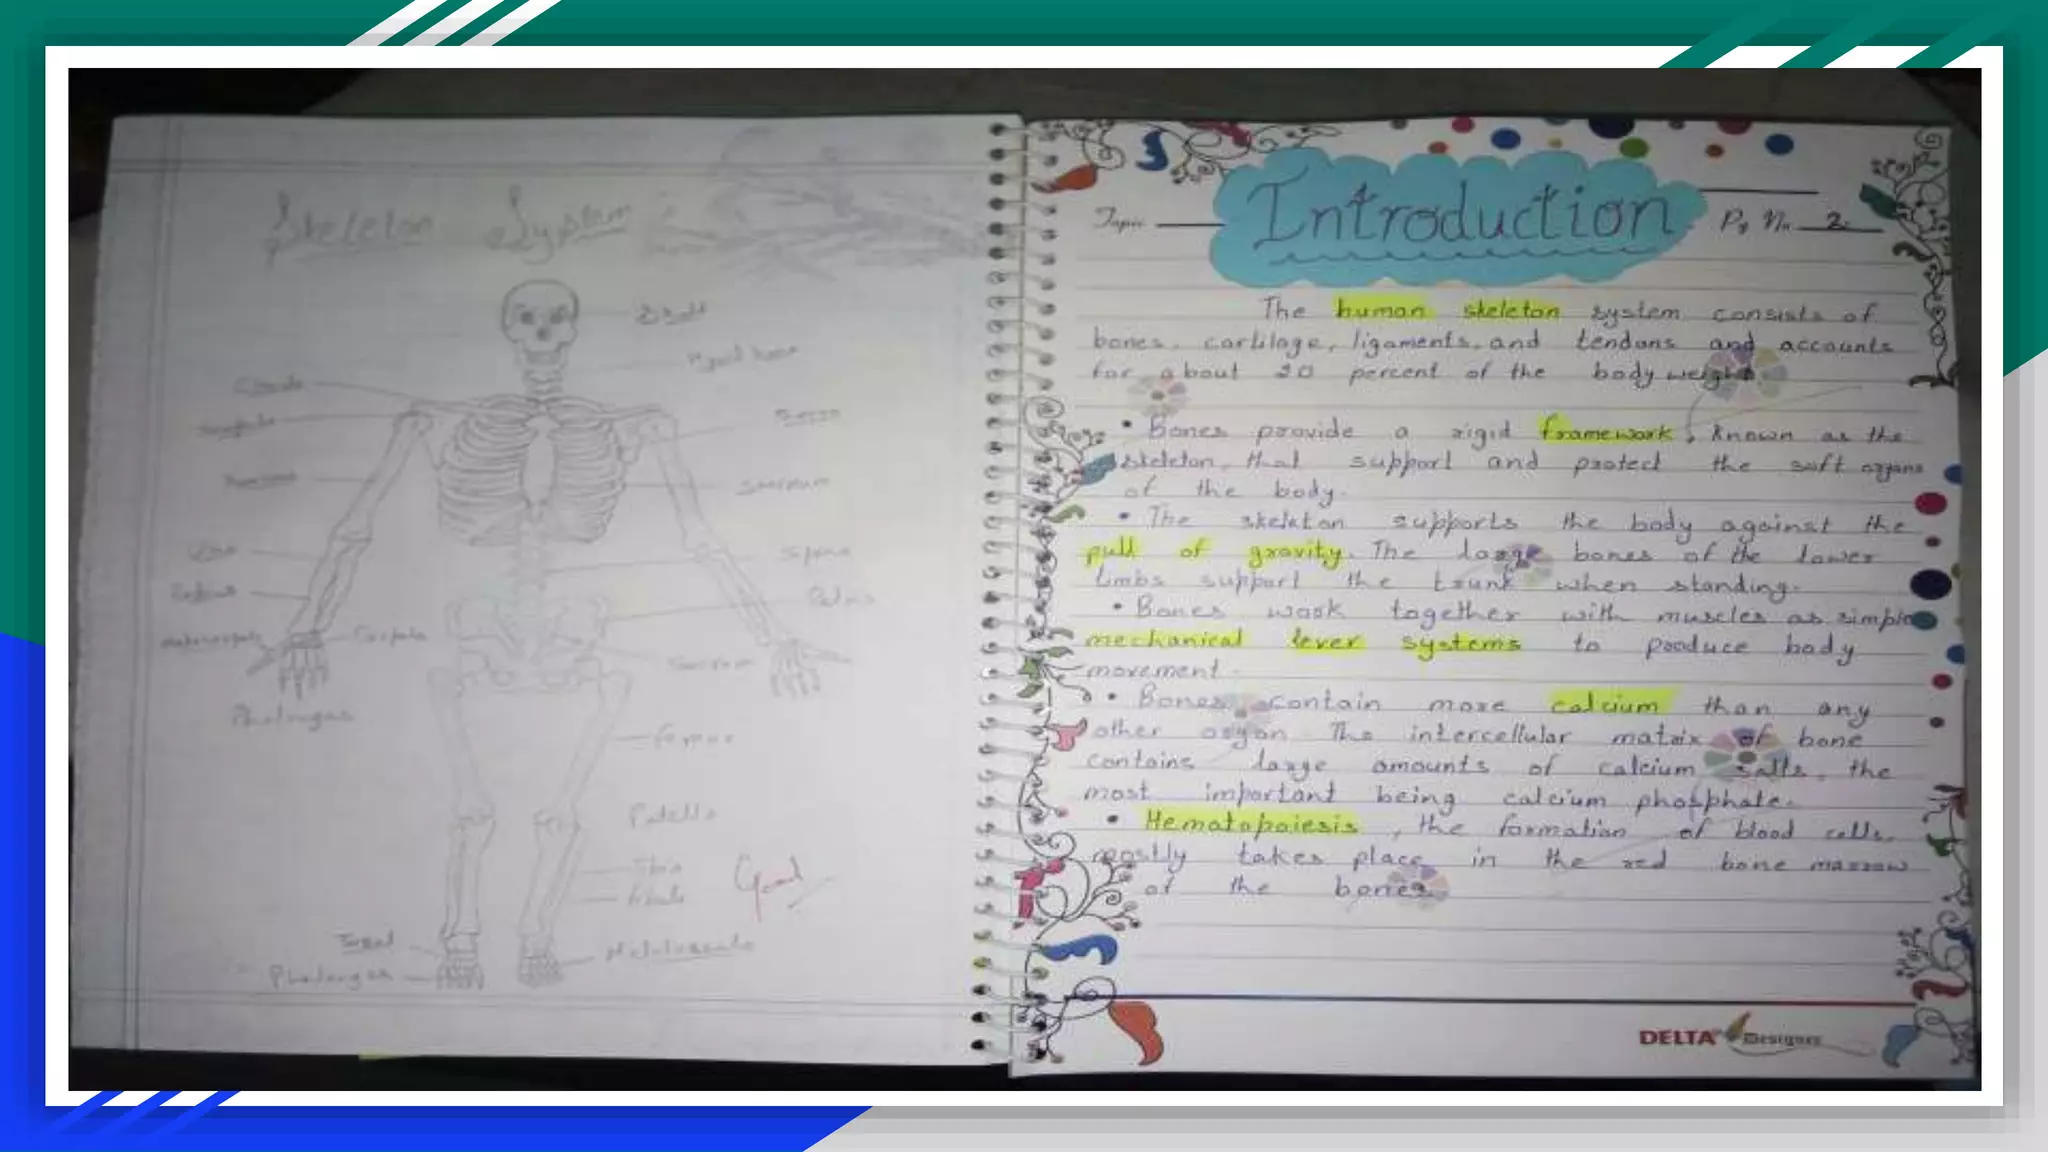 Skeleton System :
Skull
Hyoid bone
Clavicle
Sternum
Spine
Pelvis
Radius
Carpals
Sacrum
Phalanges
Femur
Patella
Tibia
Good
Tarsal
Phalanges
Introduction
Topic
Pg No. 2.
The human skeleton system consists of
bones, cartilage, ligaments, and tendons and accounts
for about 20 percent of the body weight
• Bones provide a rigid framework, known as the
skeleton, that support and protect the soft organs
of the body.
• The skeleton supports the body against the
pull of gravity. The large bones of the lower
limbs support the trunk when standing.
• Bones work together with muscles as simple
mechanical lever systems to produce body
movement.
• Bones contain more calcium than any
other organ. The intercellular matrix of bone
contains large amounts of calcium salts, the
most important being calcium phosphate.
• Hematopoiesis, the formation of blood cells,
mostly takes place in the red bone marrow
of the bones.
DELTA Designer